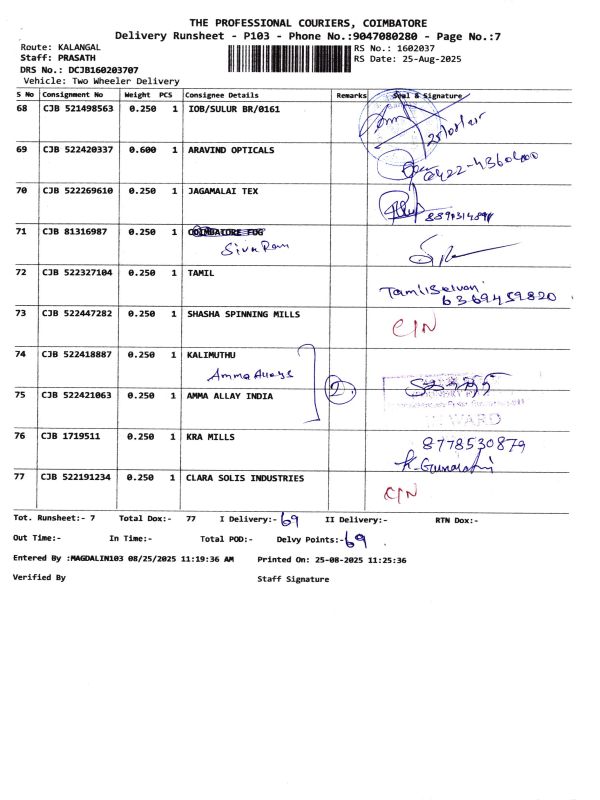 THE PROFESSIONAL COURIERS, COIMBATORE
Delivery Runsheet - P103 - Phone No.:9047080280 - Page No.:7
Route: KALANGAL RS No.: 1602037
Staff: PRASATH RS Date: 25-Aug-2025
DRS No.: DCJB160203707
Vehicle: Two Wheeler Delivery
S No Consignment No Weight PCS Consignee Details Remarks Seal & Signature
68 CJB 521498563 0.250 1 IOB/SULUR BR/0161
69 CJB 522420337 0.600 1 ARAVIND OPTICALS
0422-4360400
70 CJB 522269610 0.250 1 JAGAMALAI TEX
71 CJB 81316987 0.250 1 COIMBATORE FOG
Siva Ram
72 CJB 522327104 0.250 1 TAMIL
Tamilselvan
6369459820
73 CJB 522447282 0.250 1 SHASHA SPINNING MILLS
C/N
74 CJB 522418887 0.250 1 KALIMUTHU
Amma Alloys
2
75 CJB 522421063 0.250 1 AMMA ALLAY INDIA
76 CJB 1719511 0.250 1 KRA MILLS
8778530879
77 CJB 522191234 0.250 1 CLARA SOLIS INDUSTRIES
C/N
Tot. Runsheet:- 7 Total Dox:- 77 I Delivery:- 69 II Delivery:- RTN Dox:-
Out Time:- In Time:- Total POD:- Delvy Points:- 69
Entered By :MAGDALIN103 08/25/2025 11:19:36 AM Printed On: 25-08-2025 11:25:36
Verified By Staff Signature